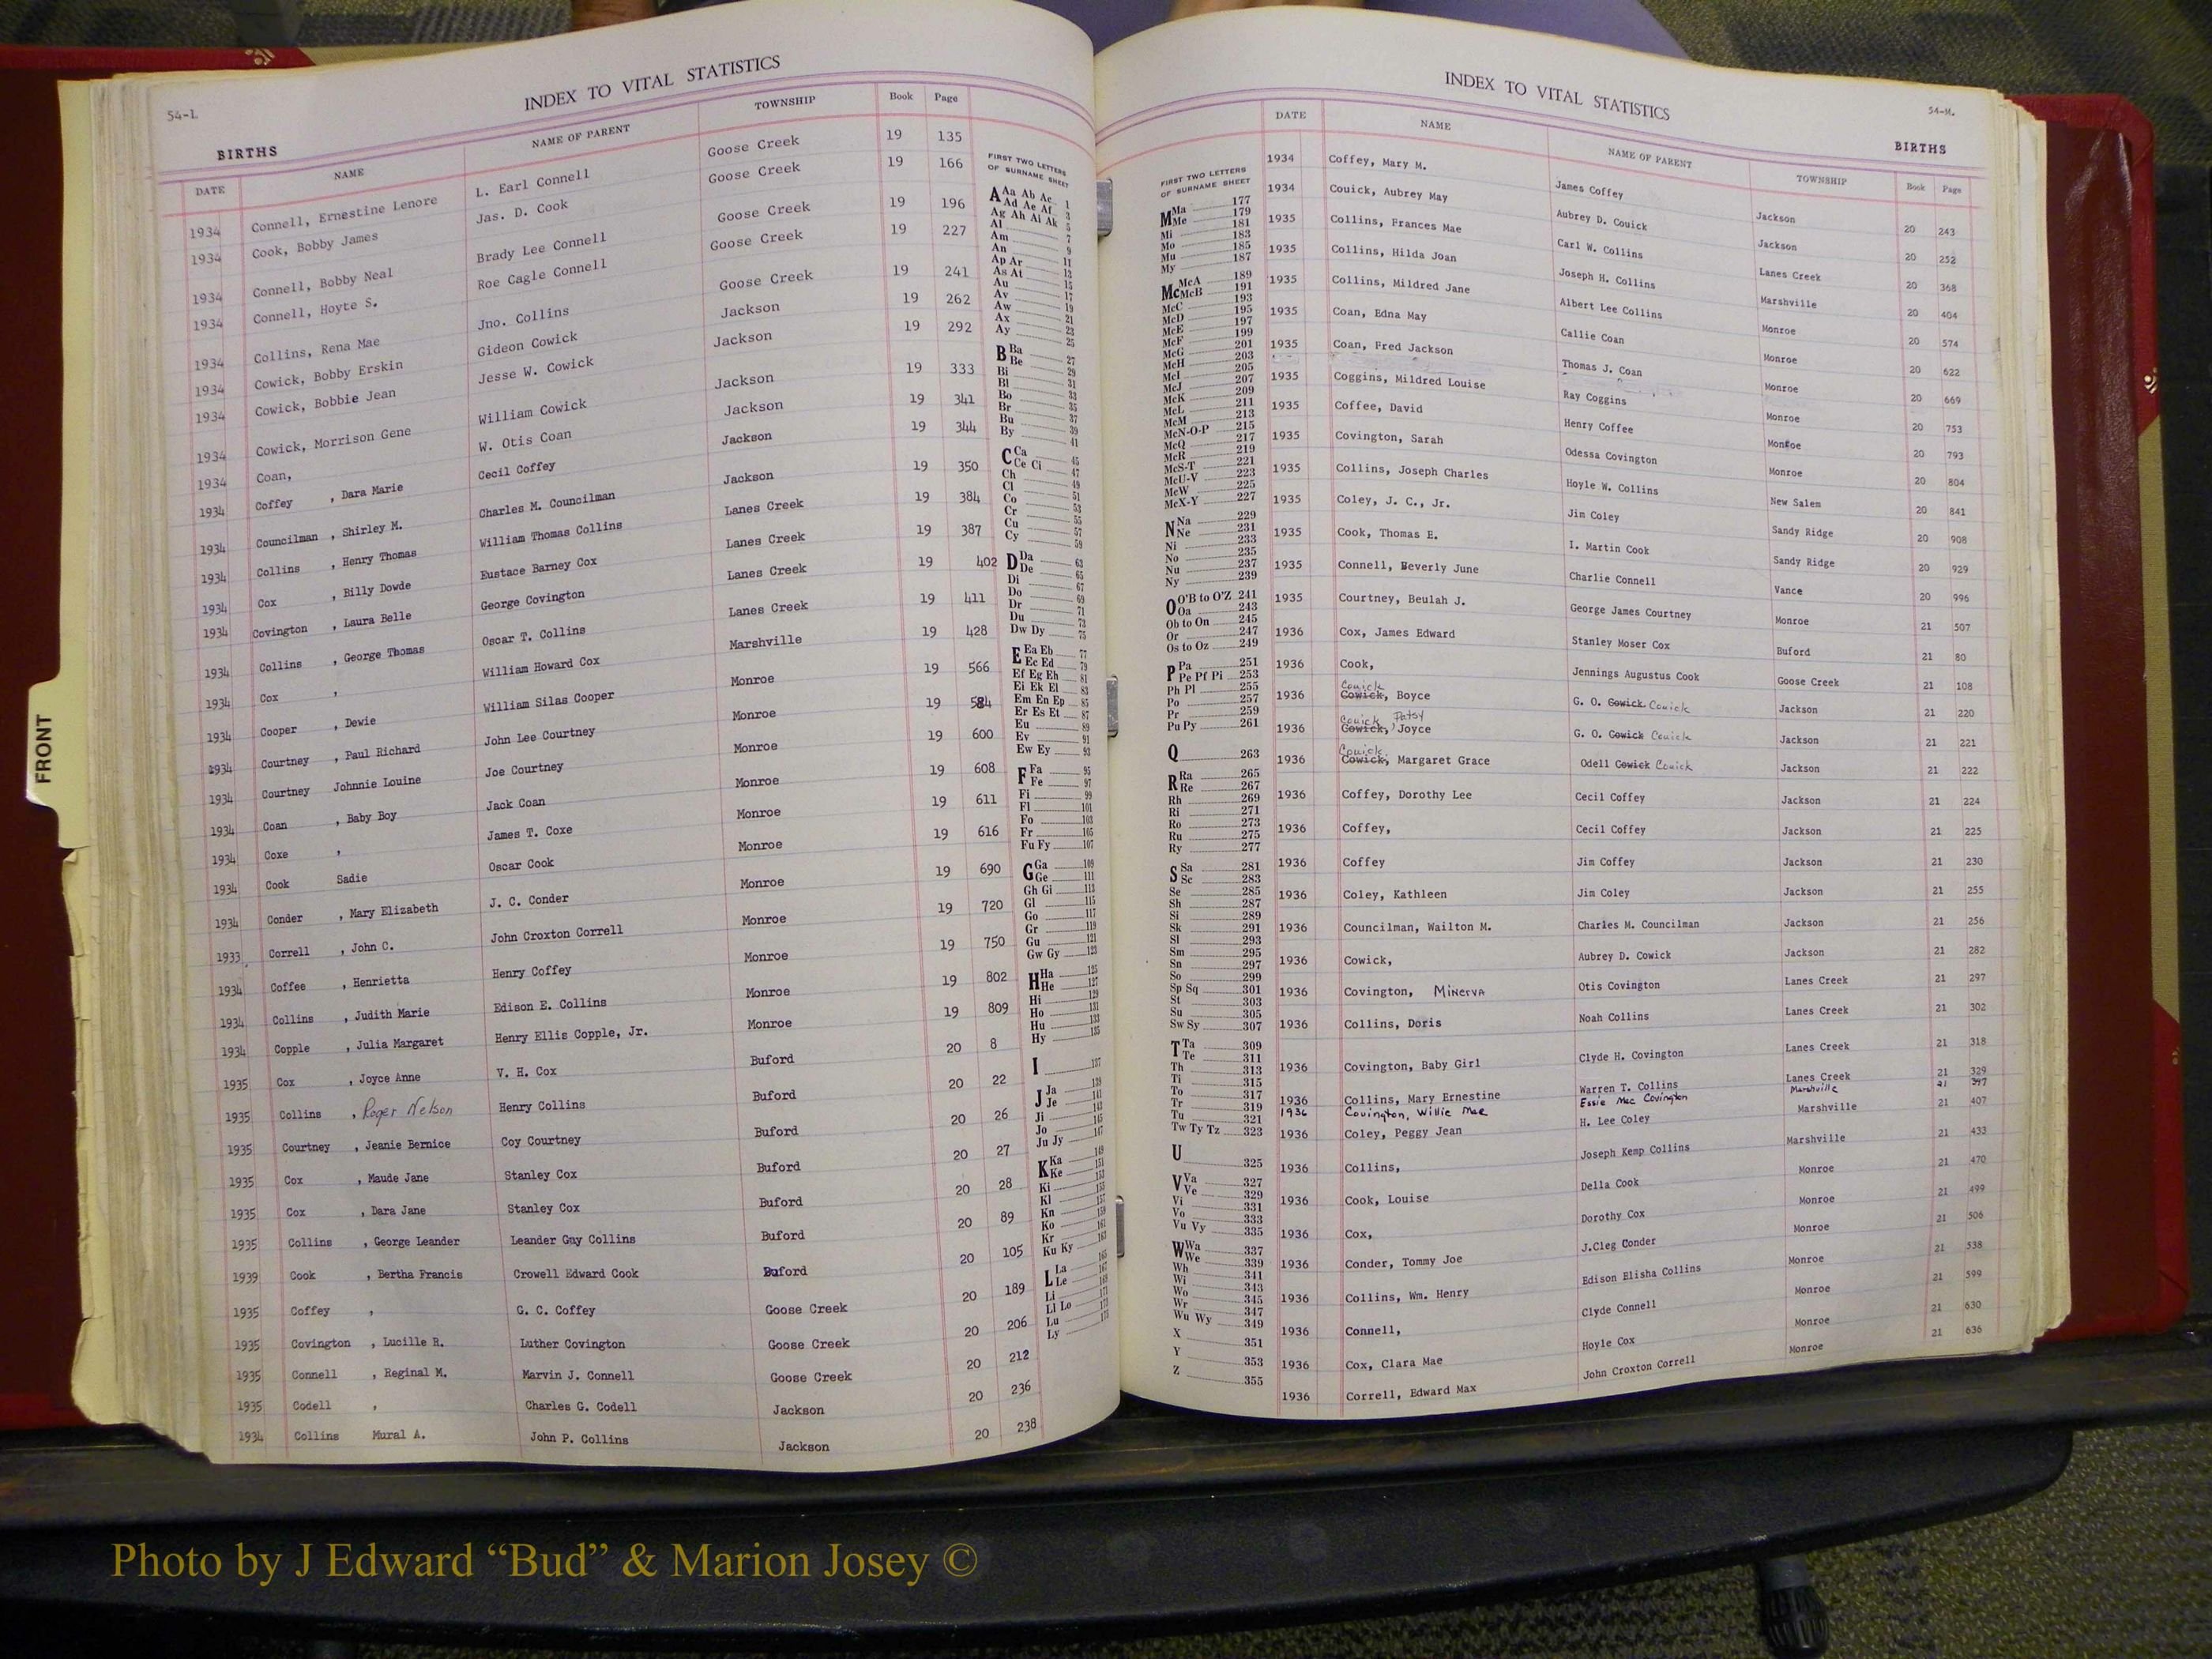 54-L
INDEX TO VITAL STATISTICS
BIRTHS
DATE NAME NAME OF PARENT TOWNSHIP Book Page
1934 Connell, Ernestine Lenore L. Earl Connell Goose Creek 19 135
1934 Cook, Bobby James Jas. D. Cook Goose Creek 19 166
1934 Connell, Bobby Neal Brady Lee Connell Goose Creek 19 196
1934 Connell, Hoyte S. Roe Cagle Connell Goose Creek 19 227
1934 Collins, Rena Mae Jno. Collins Goose Creek 19 241
1934 Cowick, Bobby Erskin Gideon Cowick Jackson 19 262
1934 Cowick, Bobbie Jean Jesse W. Cowick Jackson 19 292
1934 Cowick, Morrison Gene William Cowick Jackson 19 333
1934 Coan, W. Otis Coan Jackson 19 341
1934 Coffey , Dara Marie Cecil Coffey Jackson 19 344
1934 Councilman , Shirley M. Charles M. Councilman Jackson 19 350
1934 Collins , Henry Thomas William Thomas Collins Lanes Creek 19 384
1934 Cox , Billy Dowde Eustace Barney Cox Lanes Creek 19 387
1934 Covington , Laura Belle George Covington Lanes Creek 19 402
1934 Collins , George Thomas Oscar T. Collins Lanes Creek 19 411
1934 Cox , William Howard Cox Marshville 19 428
1934 Cooper , Dewie William Silas Cooper Monroe 19 566
1934 Courtney , Paul Richard John Lee Courtney Monroe 19 584
1934 Courtney Johnnie Louine Joe Courtney Monroe 19 600
1934 Coan , Baby Boy Jack Coan Monroe 19 608
1934 Coxe , James T. Coxe Monroe 19 611
1934 Cook Sadie Oscar Cook Monroe 19 616
1934 Conder , Mary Elizabeth J. C. Conder Monroe 19 690
1933 Correll , John C. John Croxton Correll Monroe 19 720
1934 Coffee , Henrietta Henry Coffey Monroe 19 750
1934 Collins , Judith Marie Edison E. Collins Monroe 19 802
1934 Copple , Julia Margaret Henry Ellis Copple, Jr. Monroe 19 809
1935 Cox , Joyce Anne V. H. Cox Buford 20 8
1935 Collins , Roger Nelson Henry Collins Buford 20 22
1935 Courtney , Jeanie Bernice Coy Courtney Buford 20 26
1935 Cox , Maude Jane Stanley Cox Buford 20 27
1935 Cox , Dara Jane Stanley Cox Buford 20 28
1935 Collins , George Leander Leander Guy Collins Buford 20 89
1939 Cook , Bertha Francis Crowell Edward Cook Buford 20 105
1935 Coffey , G. C. Coffey Goose Creek 20 189
1935 Covington , Lucille R. Luther Covington Goose Creek 20 206
1935 Connell , Reginal M. Marvin J. Connell Goose Creek 20 212
1935 Codell , Charles G. Codell Jackson 20 236
1934 Collins Mural A. John P. Collins Jackson 20 238
FIRST TWO LETTERS
OF SURNAME SHEET
A Aa Ab Ac 1
Ad Ae Af 3
Ag Ah Ai Ak 5
Al 7
Am 9
An 11
Ap Ar 13
As At 15
Au 17
Av 19
Aw 21
Ax 23
Ay 25
B Ba 27
Be 29
Bi 31
Bl 33
Bo 35
Br 37
Bu 39
By 41
C Ca 45
Ce Ci 47
Ch 49
Cl 51
Co 53
Cr 55
Cu 57
Cy 59
D Da 63
De 65
Di 67
Do 69
Dr 71
Du 73
Dw Dy 75
E Ea Eb 77
Ec Ed 79
Ef Eg Eh 81
Ei Ek El 83
Em En Ep 85
Er Es Et 87
Eu 89
Ev 91
Ew Ey 93
F Fa 95
Fe 97
Fi 99
Fl 101
Fo 103
Fr 105
Fu Fy 107
G Ga 109
Ge 111
Gh Gi 113
Gl 115
Go 117
Gr 119
Gu 121
Gw Gy 123
H Ha 125
He 127
Hi 129
Ho 131
Hu 133
Hy 135
I 137
J Ja 139
Je 141
Ji 143
Jo 145
Ju Jy 147
K Ka 149
Ke 151
Ki 153
Kl 155
Kn 157
Ko 159
Kr 161
Ku Ky 163
L La 165
Le 167
Li 169
Ll Lo 171
Lu 173
Ly 175
FRONT
INDEX TO VITAL STATISTICS
54-M.
BIRTHS
DATE NAME NAME OF PARENT TOWNSHIP Book Page
FIRST TWO LETTERS
OF SURNAME SHEET
M Ma 177
Me 179
Mi 181
Mo 183
Mu 185
My 187
Mc McA 189
McB 191
McC 193
McD 195
McE 197
McF 199
McG 201
McH 203
McI 205
McJ 207
McK 209
McL 211
McM 213
McN-O-P 215
McQ 217
McR 219
McS-T 221
McU-V 223
McW 225
McX-Y 227
N Na 229
Ne 231
Ni 233
No 235
Nu 237
Ny 239
O O'B to O'Z 241
Oa 243
Ob to On 245
Or 247
Os to Oz 249
P Pa 251
Pe Pf Pi 253
Ph Pl 255
Po 257
Pr 259
Pu Py 261
Q 263
R Ra 265
Re 267
Rh 269
Ri 271
Ro 273
Ru 275
Ry 277
S Sa 281
Sc 283
Se 285
Sh 287
Si 289
Sk 291
Sl 293
Sm 295
Sn 297
So 299
Sp Sq 301
St 303
Su 305
Sw Sy 307
T Ta 309
Te 311
Th 313
Ti 315
To 317
Tr 319
Tu 321
Tw Ty Tz 323
U 325
V Va 327
Ve 329
Vi 331
Vo 333
Vu Vy 335
W Wa 337
We 339
Wh 341
Wi 343
Wo 345
Wr 347
Wu Wy 349
X 351
Y 353
Z 355
1934 Coffey, Mary M. James Coffey Jackson 20 243
1934 Couick, Aubrey May Aubrey D. Couick Jackson 20 252
1935 Collins, Frances Mae Carl W. Collins Lanes Creek 20 368
1935 Collins, Hilda Joan Joseph H. Collins Marshville 20 404
1935 Collins, Mildred Jane Albert Lee Collins Monroe 20 574
1935 Coan, Edna May Callie Coan Monroe 20 622
1935 Coan, Fred Jackson Thomas J. Coan Monroe 20 669
1935 Coggins, Mildred Louise Ray Coggins Monroe 20 753
1935 Coffee, David Henry Coffee Monroe 20 793
1935 Covington, Sarah Odessa Covington Monroe 20 804
1935 Collins, Joseph Charles Hoyle W. Collins New Salem 20 841
1935 Coley, J. C., Jr. Jim Coley Sandy Ridge 20 908
1935 Cook, Thomas E. I. Martin Cook Sandy Ridge 20 929
1935 Connell, Beverly June Charlie Connell Vance 20 996
1935 Courtney, Beulah J. George James Courtney Monroe 21 507
1936 Cox, James Edward Stanley Moser Cox Buford 21 80
1936 Cook, Jennings Augustus Cook Goose Creek 21 108
1936 Cowick, Couick Boyce G. O. Cowick Couick Jackson 21 220
1936 Cowick, Couick Patsy Joyce G. O. Cowick Couick Jackson 21 221
1936 Cowick, Couick Margaret Grace Odell Cowick Couick Jackson 21 222
1936 Coffey, Dorothy Lee Cecil Coffey Jackson 21 224
1936 Coffey, Cecil Coffey Jackson 21 225
1936 Coffey Jim Coffey Jackson 21 230
1936 Coley, Kathleen Jim Coley Jackson 21 255
1936 Councilman, Wailton M. Charles M. Councilman Jackson 21 256
1936 Cowick, Aubrey D. Cowick Jackson 21 282
1936 Covington, Minerva Otis Covington Lanes Creek 21 297
1936 Collins, Doris Noah Collins Lanes Creek 21 302
1936 Covington, Baby Girl Clyde H. Covington Lanes Creek 21 318
1936 Collins, Mary Ernestine Warren T. Collins Lanes Creek 21 329
1936 Covington, Willie Mae Essie Mae Covington Marshville 21
1936 Coley, Peggy Jean H. Lee Coley Marshville 21 407
1936 Collins, Joseph Kemp Collins Marshville 21 433
1936 Cook, Louise Della Cook Monroe 21 470
1936 Cox, Dorothy Cox Monroe 21 499
1936 Conder, Tommy Joe J.Cleg Conder Monroe 21 506
1936 Collins, Wm. Henry Edison Elisha Collins Monroe 21 538
1936 Connell, Clyde Connell Monroe 21 599
1936 Cox, Clara Mae Hoyle Cox Monroe 21 630
1936 Correll, Edward Max John Croxton Correll Monroe 21 636
Photo by J Edward “Bud” & Marion Josey ©